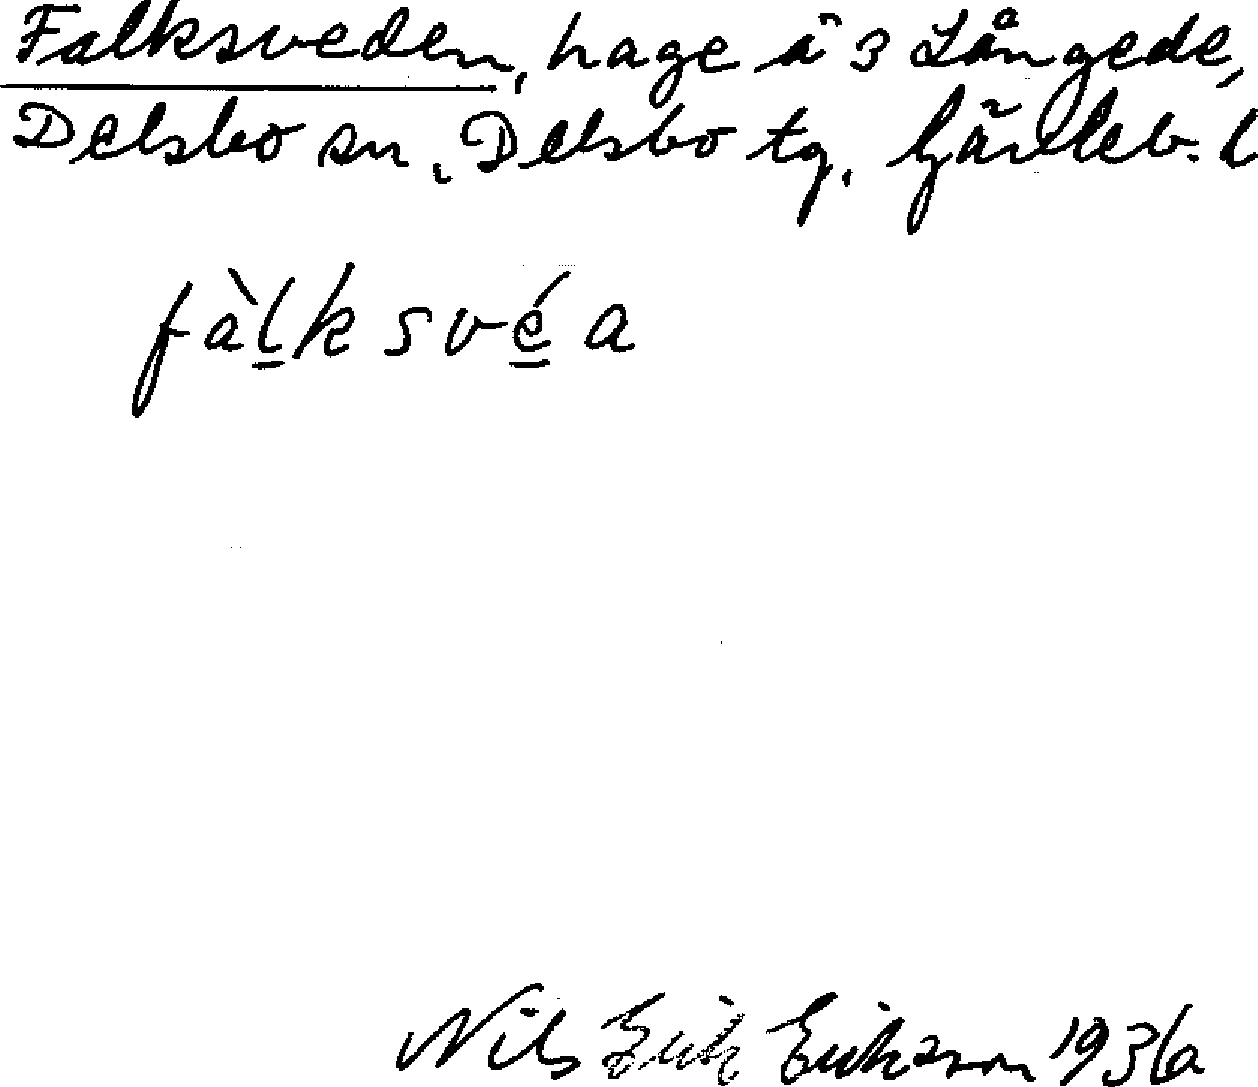 Falksveden, hage å 3 Långede,
Delsbo sn, Delsbo tg, Gävleb. l
fàlksvéa
Nils Erik Eriksson 1936